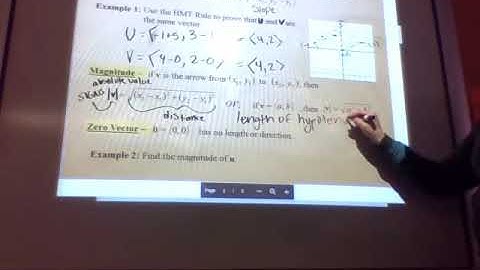 slope
Example 1: Use the HMT Rule to prove that U and V are
the same vector
U = ⟨-1+5, 3-1⟩ = ⟨4,2⟩
V = ⟨4-0, 2-0⟩ = ⟨4,2⟩
Magnitude - if v is the arrow from (x₁, y₁) to (x₂, y₂), then
absolute value
signs |v| = √(x₂ - x₁)² + (y₂ - y₁)² or, if v = ⟨a, b⟩, then |v| =
distance
length of
Zero Vector - 0 = ⟨0, 0⟩ has no length or direction.
Example 2: Find the magnitude of u